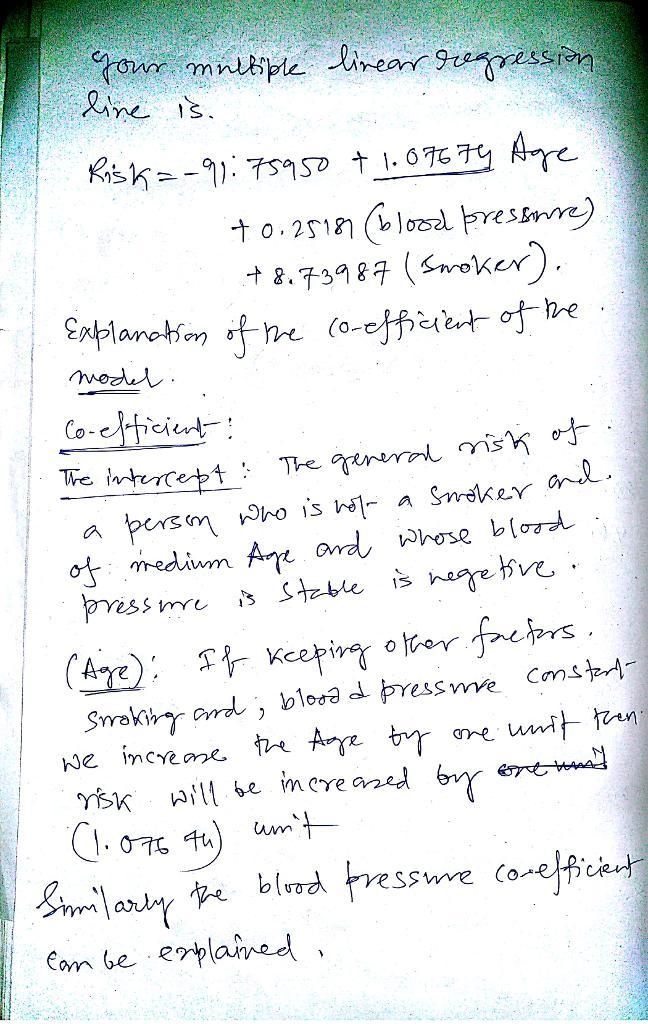 Your multiple linear regression
line is.
Risk = -91.75950 + 1.07674 Age
+ 0.25181 (blood pressure)
+ 8.73987 (Smoker).
Explanation of the co-efficient of the
model.
Co-efficient:
The intercept: The general risk of
a person who is not a smoker and
of medium Age and whose blood
pressure is stable is negetive.
(Age): If keeping other factors.
smoking and; blood pressure constant
we increase the Age by one unit then
risk will be increased by one unit
(1.07674) unit
Similarly the blood pressure co-efficient
can be explained.